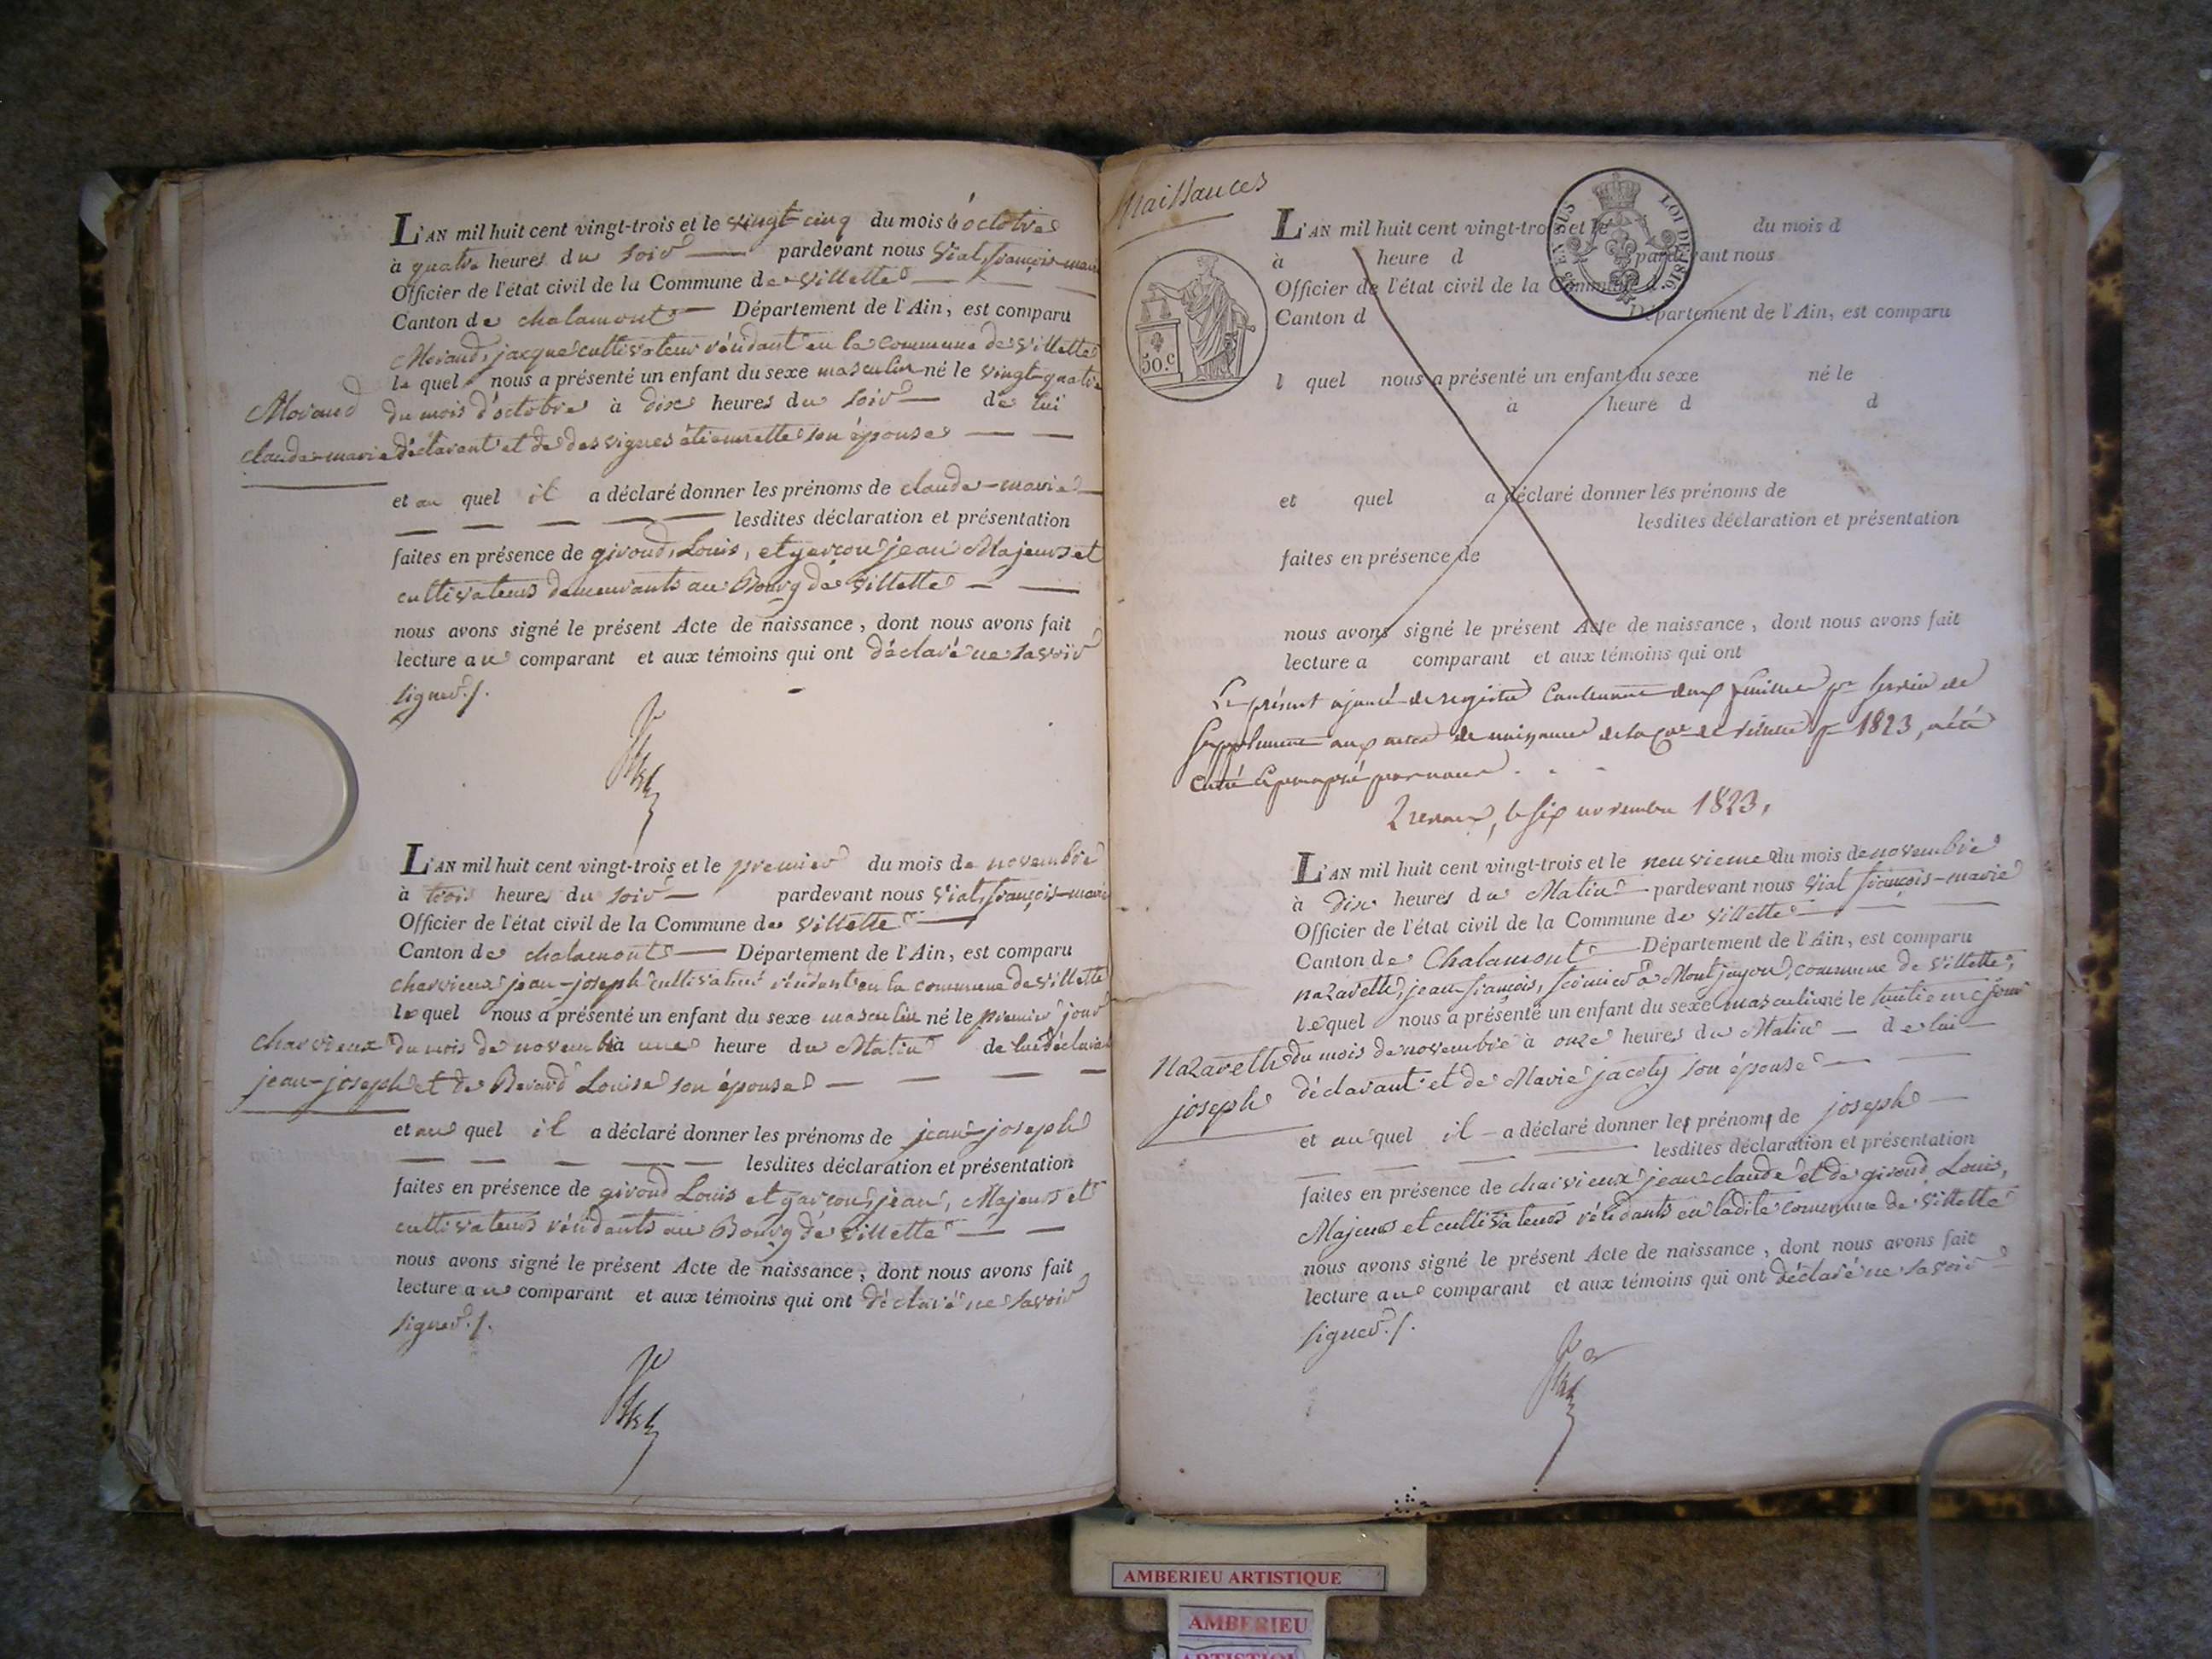 L'AN mil huit cent vingt-trois et le vingt-cinq du mois d'octobre
à quatre heures du soir pardevant nous Vial, françois-marie
Officier de l'état civil de la Commune de Villette
Canton de chalamont Département de l'Ain, est comparu
Morand, jacque cultivateur résidant en la commune de Villette
le quel nous a présenté un enfant du sexe masculin né le vingt-quatre
Morand
du mois d'octobre à dix heures du soir de lui
claude-marie
déclarant et de desvignes étiennette son épouse
et au quel il a déclaré donner les prénoms de claude-marie
lesdites déclaration et présentation
faites en présence de giroud, Louis, et garçon jean Majeurs et
cultivateurs demeurants au Bourg de Villette
nous avons signé le présent Acte de naissance, dont nous avons fait
lecture au comparant et aux témoins qui ont déclaré ne savoir
signer./.
L'AN mil huit cent vingt-trois et le premier du mois de novembre
à trois heures du soir pardevant nous Vial, françois-marie
Officier de l'état civil de la Commune de Villette
Canton de chalamont Département de l'Ain, est comparu
charvieux jean-joseph cultivateur résidant en la commune de Villette
le quel nous a présenté un enfant du sexe masculin né le premier jour
charvieux
du mois de novembre à une heure du Matin de lui déclarant
jean-joseph
et de Berard Louise son épouse
et au quel il a déclaré donner les prénoms de jean-joseph
lesdites déclaration et présentation
faites en présence de giroud Louis et garçon, jean, Majeurs et
cultivateurs résidants au Bourg de Villette
nous avons signé le présent Acte de naissance, dont nous avons fait
lecture au comparant et aux témoins qui ont déclaré ne savoir
signer./.
Naissances
50.c
EN SUS LOI DE 1816
L'AN mil huit cent vingt-trois et le du mois d
à heure d pardevant nous
Officier de l'état civil de la Commune d
Canton d Département de l'Ain, est comparu
l quel nous a présenté un enfant du sexe né le
à heure d d
et quel a déclaré donner les prénoms de
lesdites déclaration et présentation
faites en présence de
nous avons signé le présent Acte de naissance, dont nous avons fait
lecture a comparant et aux témoins qui ont
Le présent de registre contenant deux feuilles pr servir de
supplement aux actes de naissance de la de Villette pr 1823, a été
par nous
le six novembre 1823,
L'AN mil huit cent vingt-trois et le neuvieme du mois de novembre
à dix heures du Matin pardevant nous Vial françois-marie
Officier de l'état civil de la Commune de Villette
Canton de Chalamont Département de l'Ain, est comparu
nazareth, jean-françois, fermier à Montjayon, commune de Villette,
le quel nous a présenté un enfant du sexe masculin né le huitieme jour
nazareth
du mois de novembre à onze heures du Matin de lui
joseph
déclarant et de Marie jacoty son épouse
et au quel il a déclaré donner les prénoms de joseph
lesdites déclaration et présentation
faites en présence de charvieux jean-claude et de giroud Louis,
Majeurs et cultivateurs résidants en ladite commune de Villette
nous avons signé le présent Acte de naissance, dont nous avons fait
lecture au comparant et aux témoins qui ont déclaré ne savoir
signer./.
AMBERIEU ARTISTIQUE
AMBERIEU
ARTISTIQUE